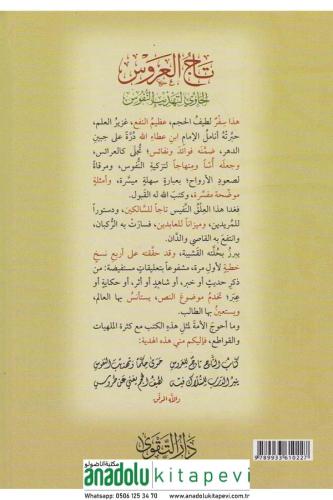 تاج العروس
الحاوي لتهذيب النفوس
هذا سِفْرٌ لطيفُ الحجم، عظيمُ النفع، غزيرُ العلم،
حبَّرَتْهُ أناملُ الإمامِ ابنِ عطاءِ الله دُرَّةً على جبينِ
الدهر، ضمَّنَهُ فوائدَ ونفائسَ؛ تُجلَى كالعرائس،
وجعلَه أُسّاً ومِنهاجاً لتزكيةِ النُّفوس، ومرقاةً
لصعودِ الأرواح؛ بعبارةٍ سهلةٍ ميسَّرة، وأمثلةٍ
موضِّحة مفسِّرة، وكتبَ الله له القَبول.
فغدا هذا العِلْقُ النَّفيس تاجاً للسالكين، ودستوراً
للمُريدين، وميزاناً للعابدين، فسارَتْ به الرُّكبان،
وانتفعَ به القاصي والدَّان.
يبرزُ بحُلَّتِه القَشيبة، وقد حقَّقتُه على أربعِ نسخٍ
خطيةٍ لأولِ مرة، مشفوعاً بتعليقاتٍ مستفيضة؛ من
ذكرِ حديثٍ أو خبر، أو شاهدٍ أو أثر، أو حكايةٍ أو
عِبَر؛ تخدمُ موضوعَ النص، يستأنسُ بها العالم،
ويستعينُ بها الطالب.
وما أحوجَ الأمةَ لمثلِ هذه الكتب مع كثرةِ الملهيات
والقواطع، فإليكم مني هذه الهدية:
كتاب التاج تاج للعروس
حوى حكماً وتهذيب النفوس
ينير الدرب للسلاك فيه
لطيف الحجم يغني عن طروس
والله الموفق
دار التقوى
9 789933 610227
مكتبة الاناضولو
anadolu kitapevi
Whatsapp: 0506 125 34 70 - www.anadolukitapevi.net